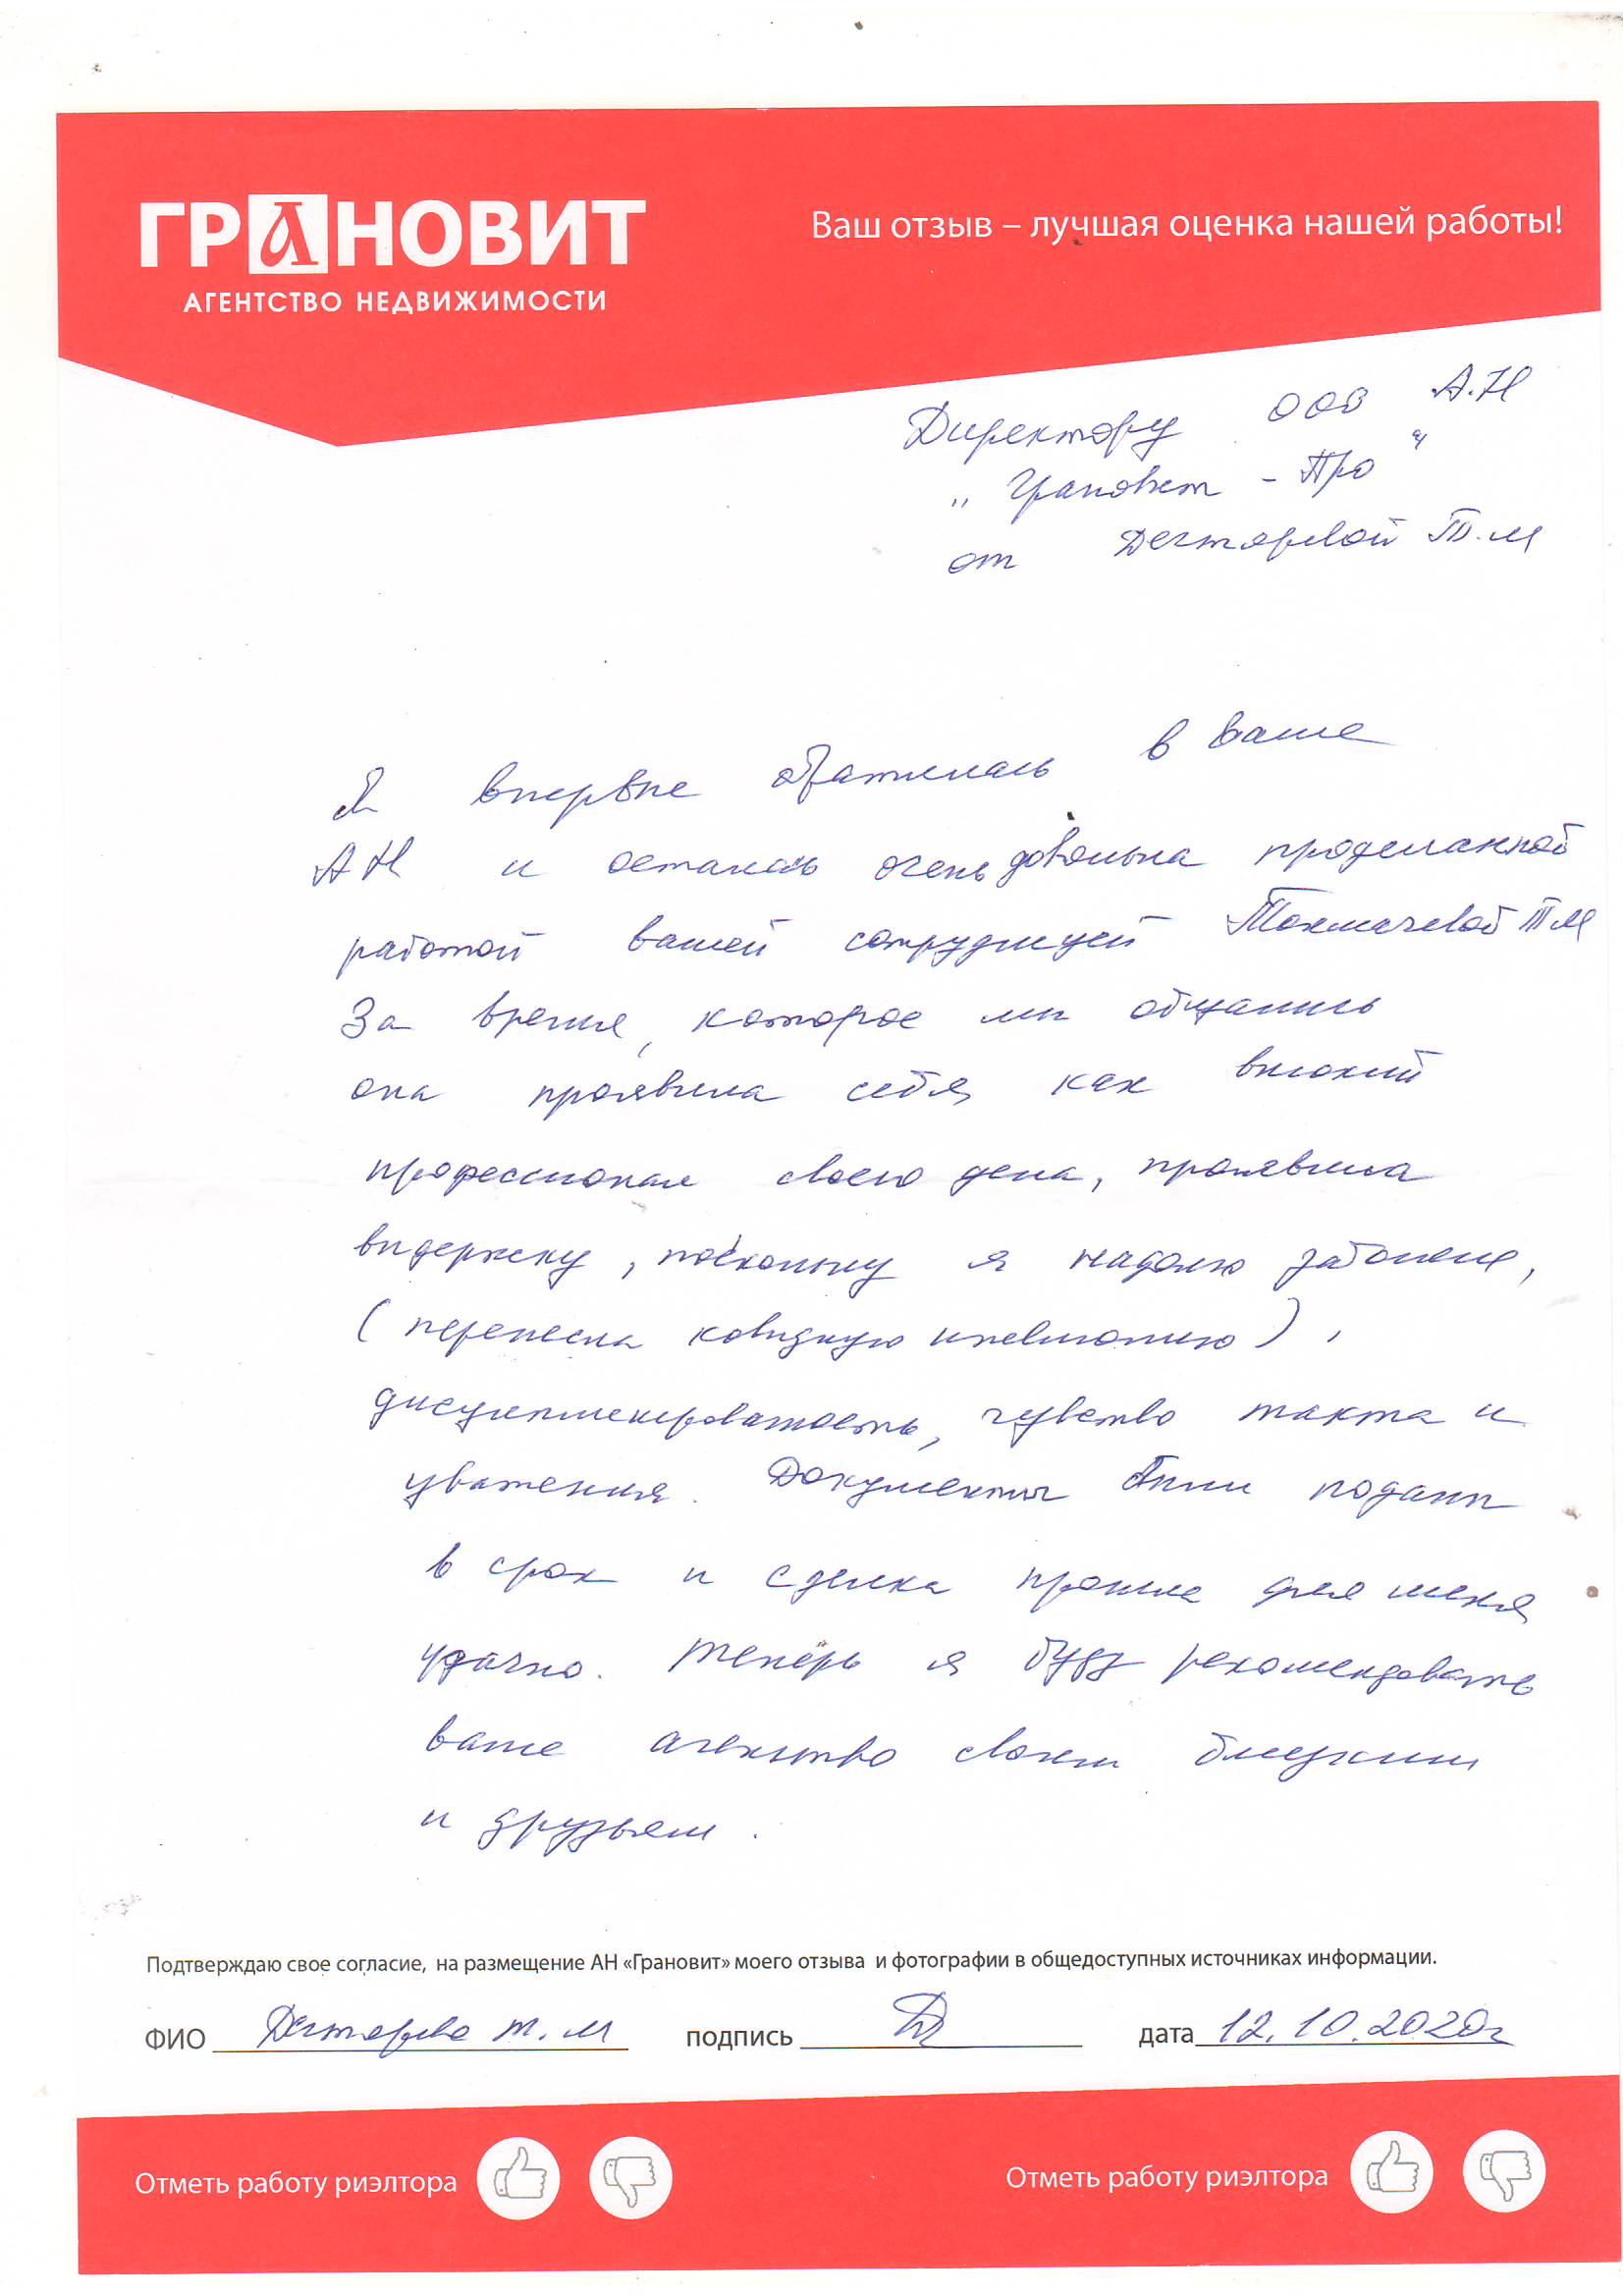 ГРАНОВИТ
АГЕНТСТВО НЕДВИЖИМОСТИ
Ваш отзыв – лучшая оценка нашей работы!
Директору ООО А.Н
„Грановит - Про"
от Дегтяревой Т.М
Я впервые обратилась в ваше
АН и осталась очень довольна проделанной
работой вашей сотрудницей Токмачевой ТМ
За время, которое мы общались
она проявила себя как высокий
профессионал своего дела, проявила
выдержку, поскольку я надолго заболела,
(перенесла ковидную пневмонию),
дисциплинированность, чувство такта и
уважения. Документы были поданы
в срок и сделка прошла для меня
удачно. Теперь я буду рекомендовать
ваше агенство своим близким
и друзьям.
Подтверждаю свое согласие, на размещение АН «Грановит» моего отзыва и фотографии в общедоступных источниках информации.
ФИО Дегтярева Т.М подпись дата 12.10.2020г
Отметь работу риэлтора Отметь работу риэлтора